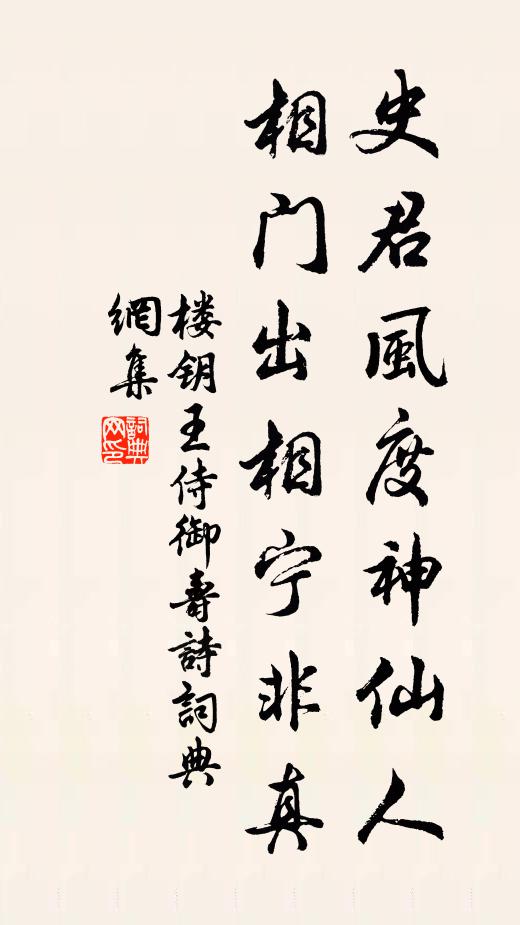 史君風度神仙人
相门出相宁非真
楼钥王侍御寿詩詞典
網集
詞典
网印